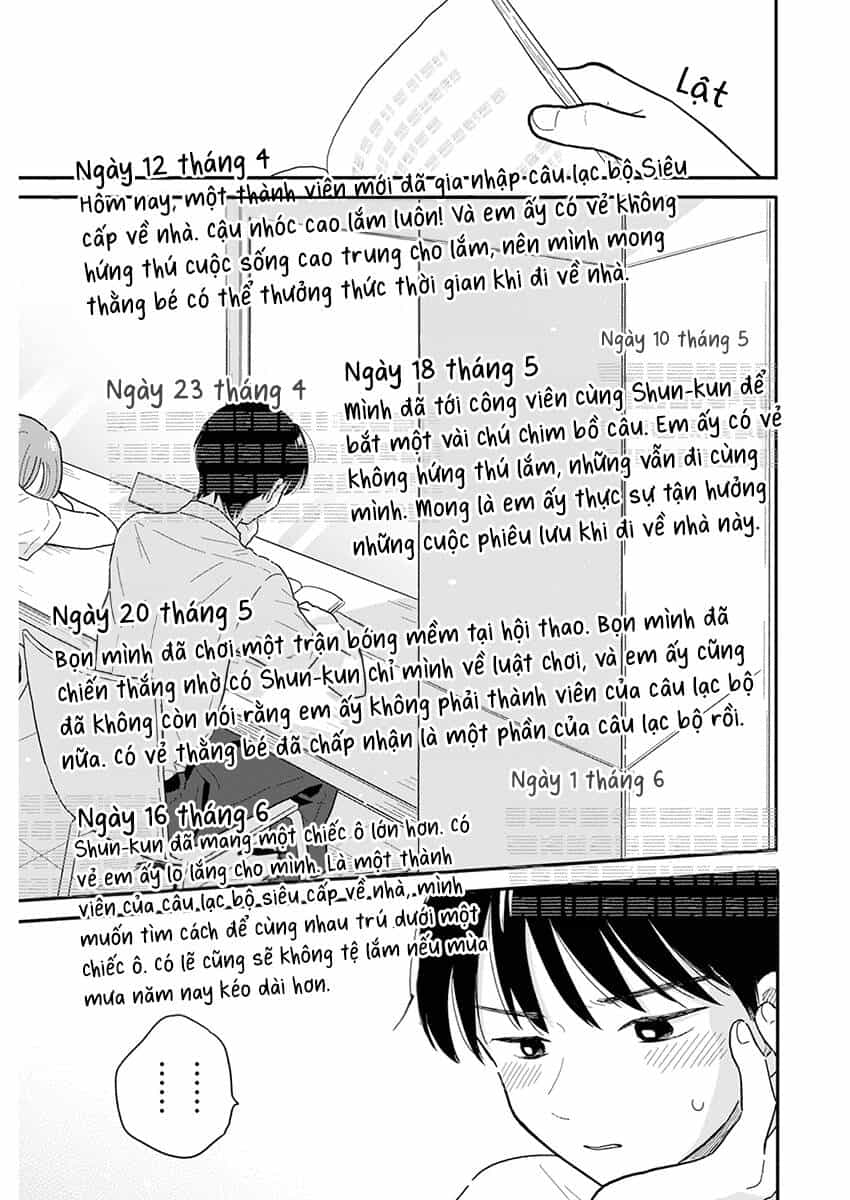 Lật
Ngày 12 tháng 4
Hôm nay, một thành viên mới đã gia nhập câu lạc bộ Siêu
cấp về nhà. Cậu nhóc cao lắm luôn! Và em ấy có vẻ không
hứng thú cuộc sống cao trung cho lắm, nên mình mong
thằng bé có thể thưởng thức thời gian khi đi về nhà.
Ngày 10 tháng 5
Ngày 23 tháng 4
Ngày 18 tháng 5
Mình đã tới công viên cùng Shun-kun để
bắt một vài chú chim bồ câu. Em ấy có vẻ
không hứng thú lắm, những vẫn đi cùng
mình. Mong là em ấy thực sự tận hưởng
những cuộc phiêu lưu khi đi về nhà này.
Ngày 20 tháng 5
Bọn mình đã chơi một trận bóng mềm tại hội thao. Bọn mình đã
chiến thắng nhờ có Shun-kun chỉ mình về luật chơi, và em ấy cũng
đã không còn nói rằng em ấy không phải thành viên của câu lạc bộ
nữa. Có vẻ thằng bé đã chấp nhận là một phần của câu lạc bộ rồi.
Ngày 1 tháng 6
Ngày 16 tháng 6
Shun-kun đã mang một chiếc ô lớn hơn. Có
vẻ em ấy lo lắng cho mình. Là một thành
viên của câu lạc bộ siêu cấp về nhà, mình
muốn tìm cách để cùng nhau trú dưới một
chiếc ô. Có lẽ cũng sẽ không tệ lắm nếu mùa
mưa năm nay kéo dài hơn.